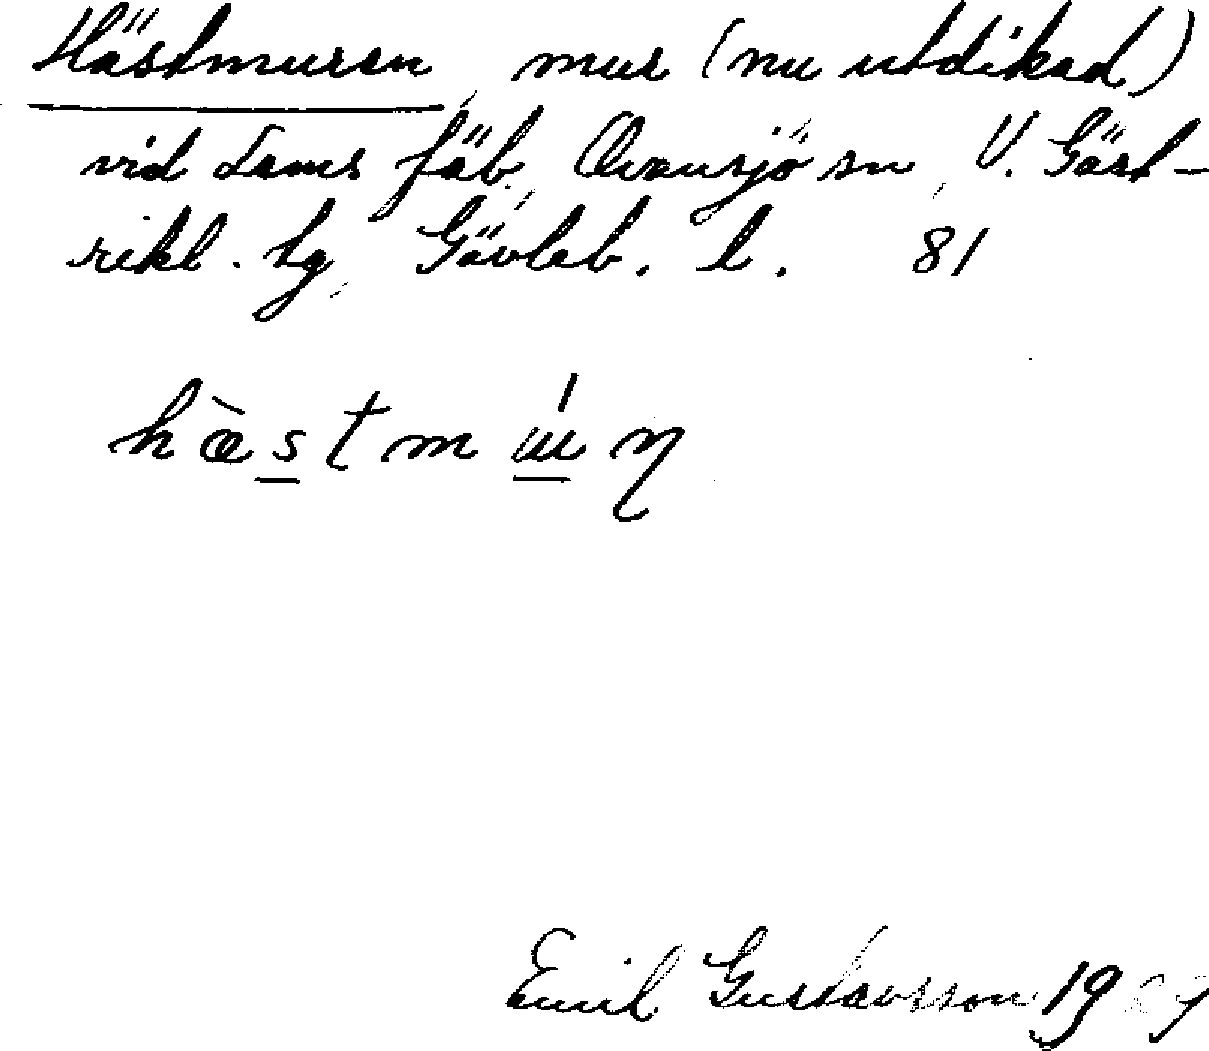 Hästmuren, mur (nu utdikad)
vid Lams fäb., Ovansjö sn, V. Gäst-
rikl. tg, Gävleb. l. 81
hæ̀stmúɳ
Emil Gustavsson 19